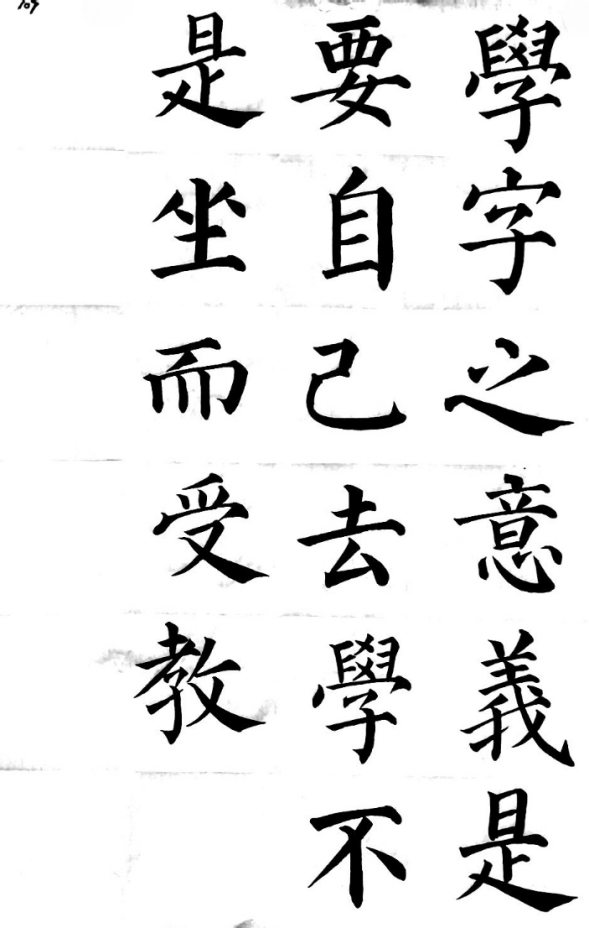 學字之意義是
要自己去學不
是坐而受教